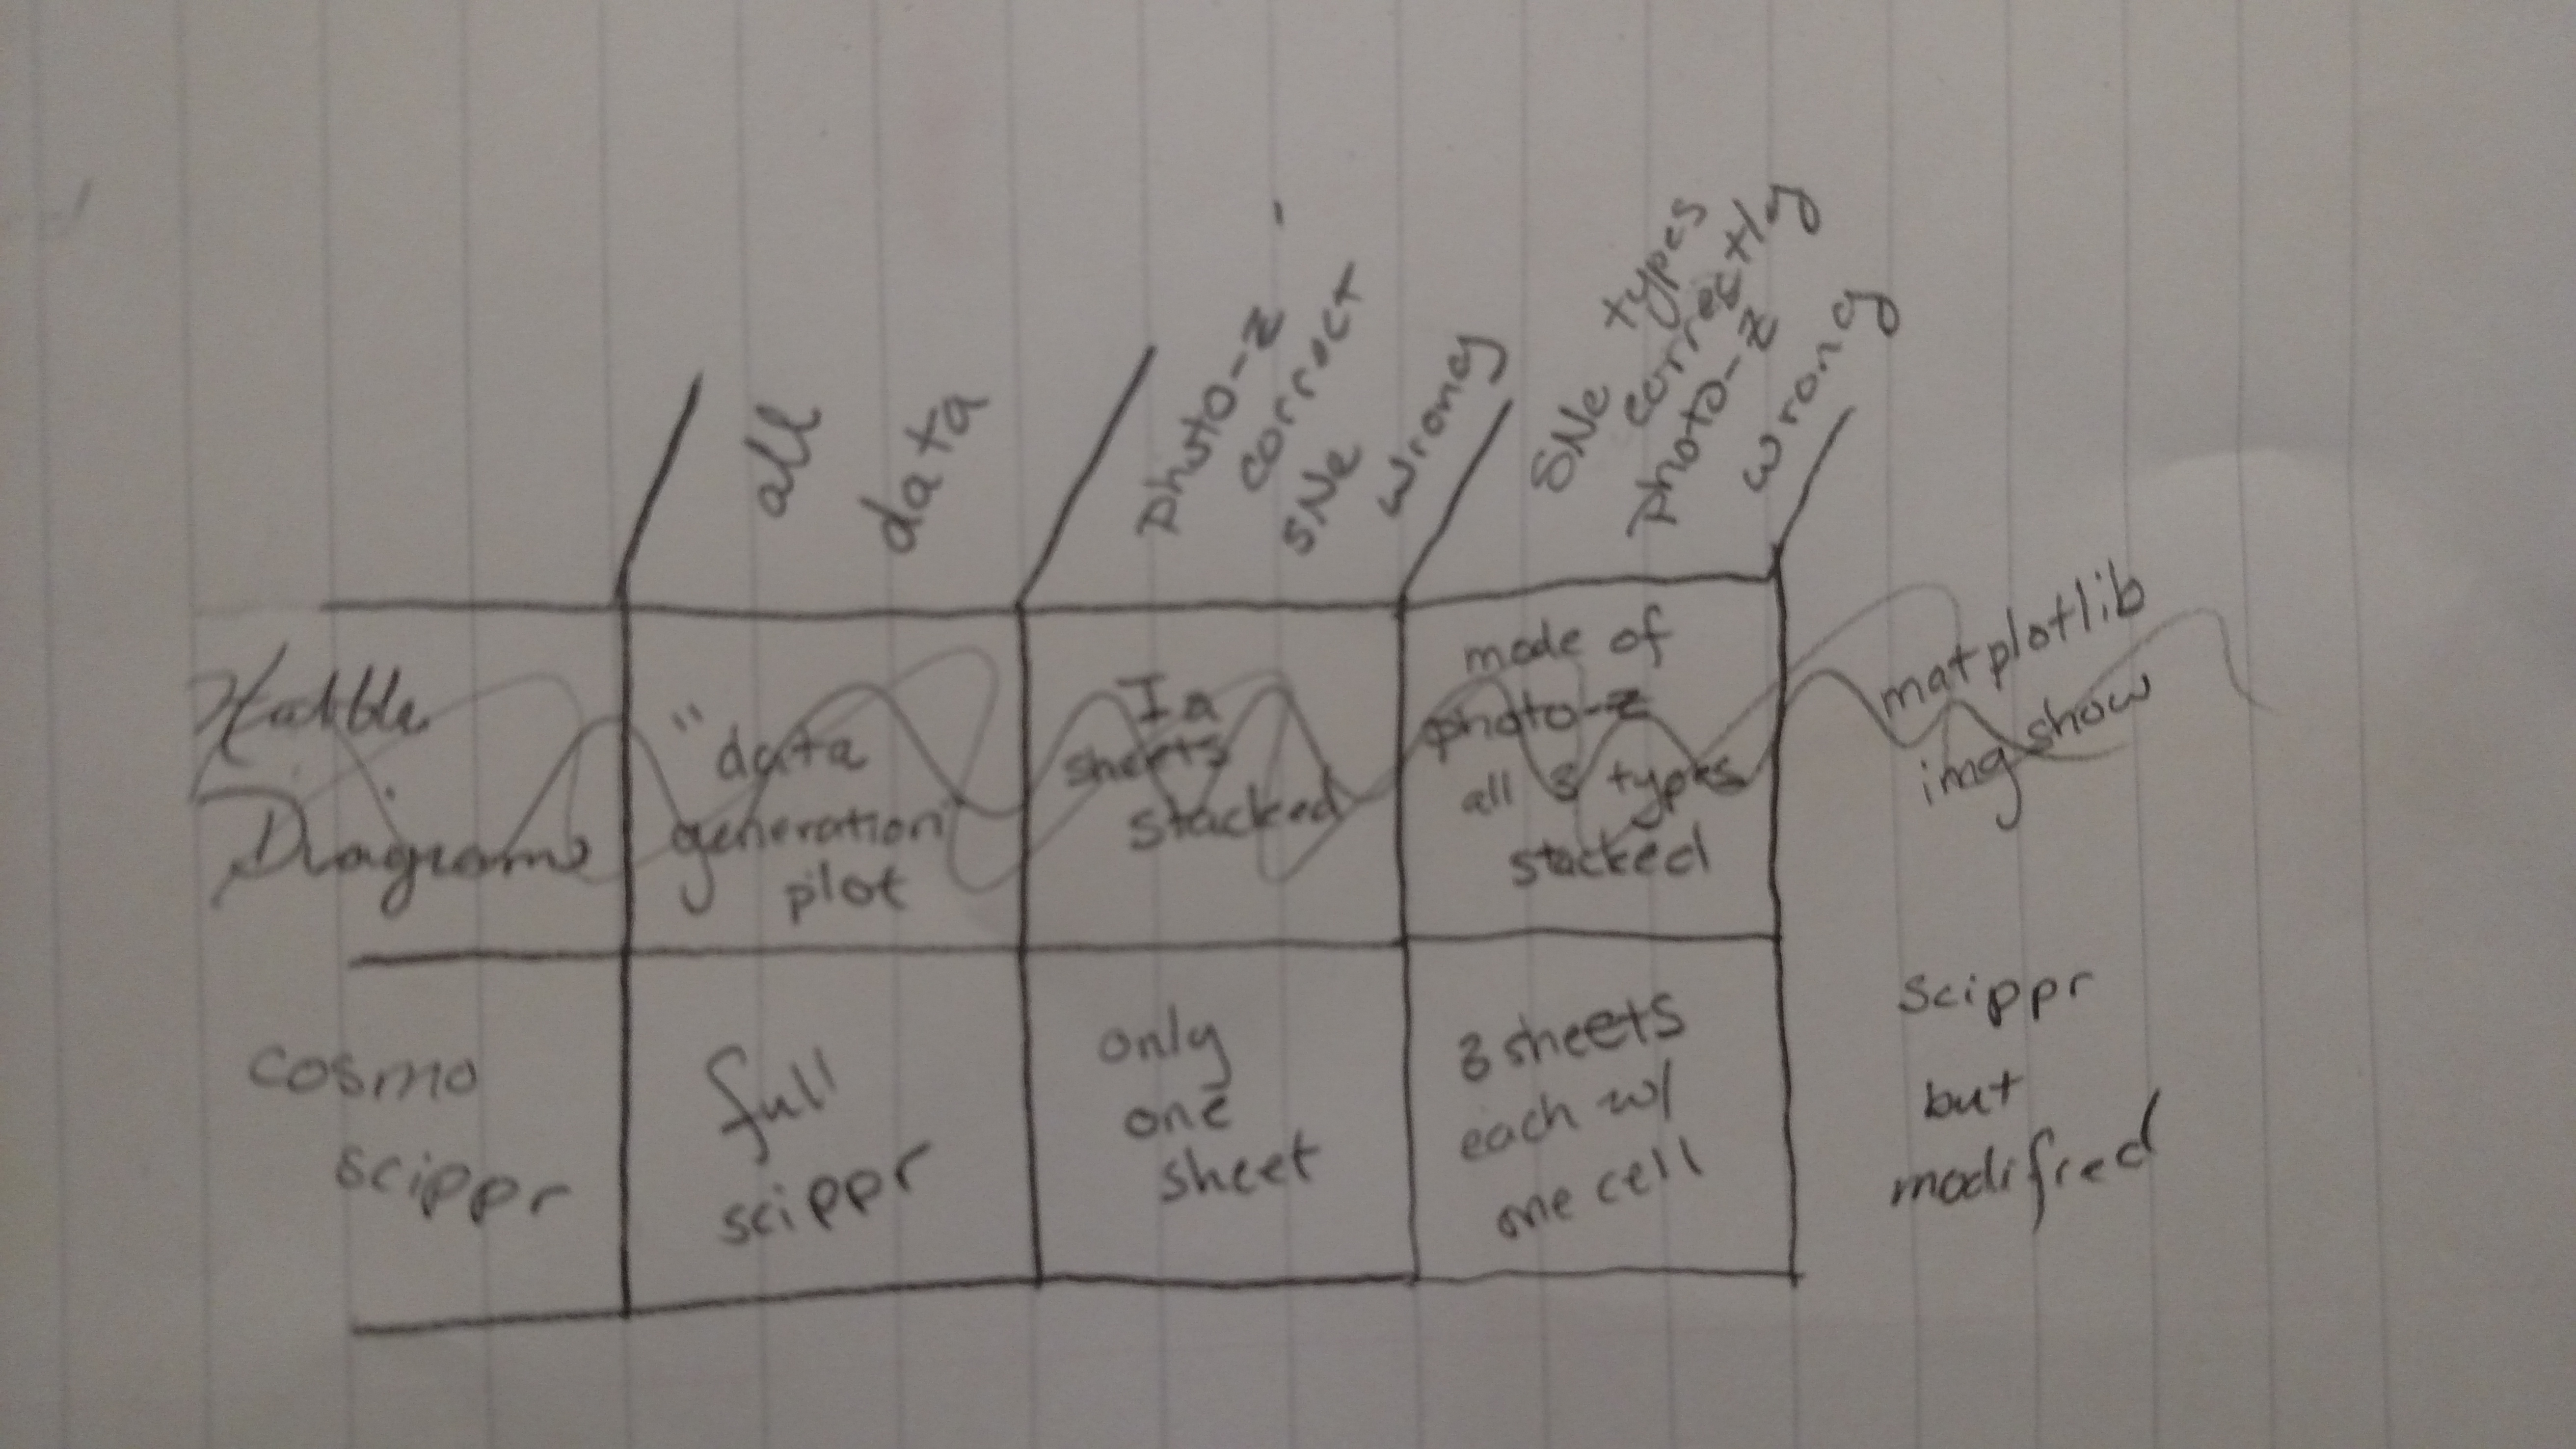 all
data
photo-z
correct
SNe
wrong
SNe types
correctly
photo-z
wrong
Hubble
Diagrams
"data
generation"
plot
Ia
sheets
stacked
mode of
photo-z
all 3 types
stacked
matplotlib
imgshow
cosmo
scippr
full
scippr
only
one
sheet
3 sheets
each w/
one cell
scippr
but
modified